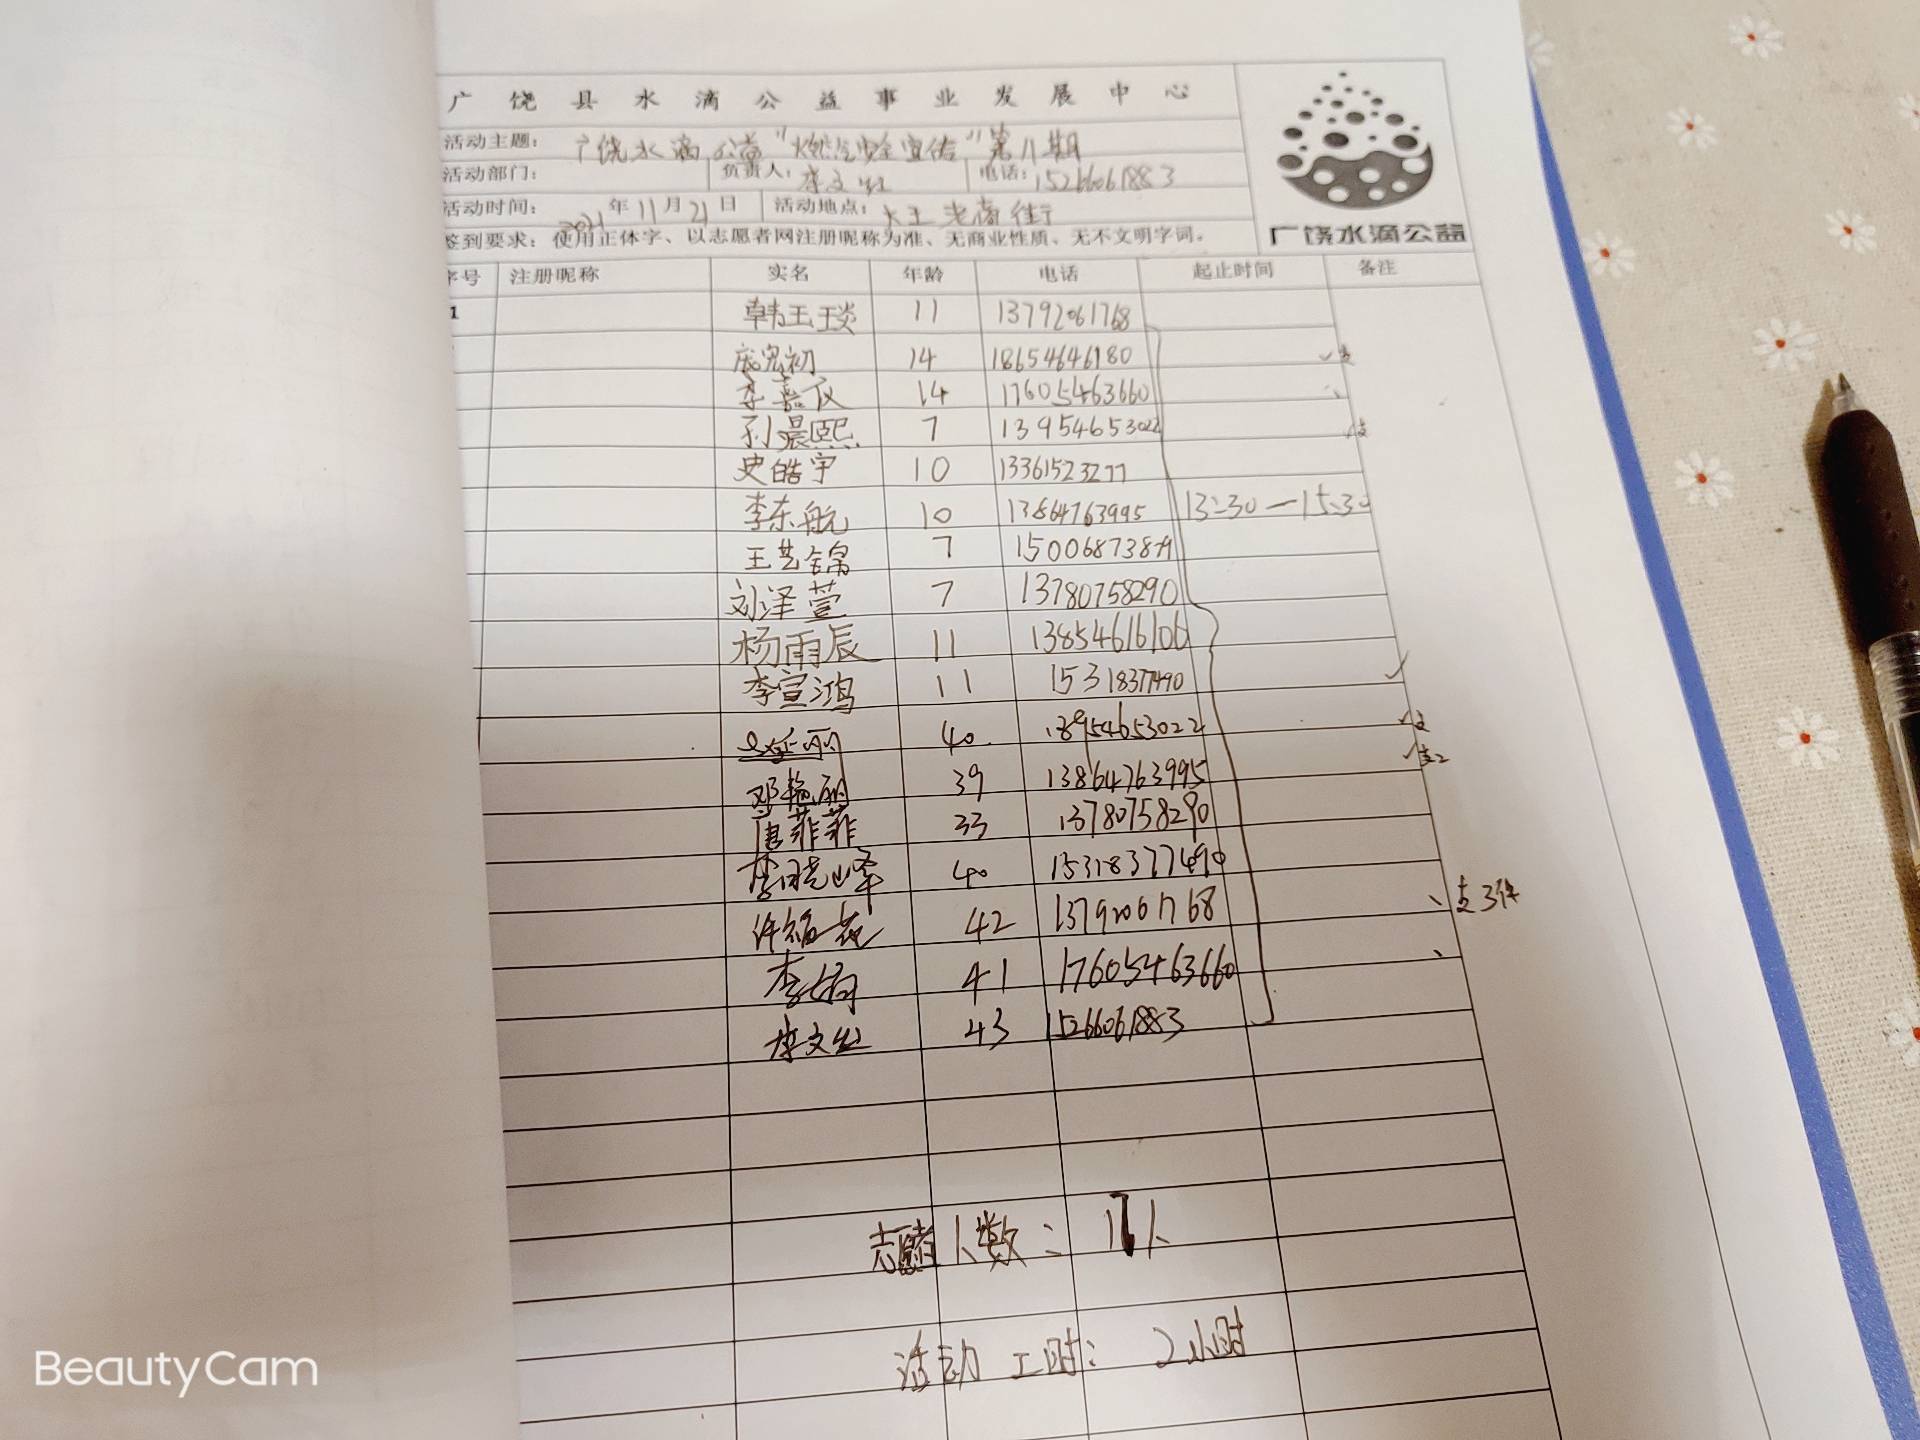 广饶县水滴公益事业发展中心
活动主题: 广饶水滴公益"燃气安全宣传"第八期
活动部门: 负责人: 李文 电话: 15266061883
活动时间: 2021年11月21日 活动地点: 大王 老商街
签到要求: 使用正体字、以志愿者网注册昵称为准、无商业性质、无不文明字词。
广饶水滴公益
序号 注册昵称 实名 年龄 电话 起止时间 备注
1 韩玉琰 11 13792061768
庞宽初 14 18654646180 支
李嘉仪 14 17605463660
孙晨熙 7 13954653022 支
史皓宇 10 13361523277
李东航 10 13864763995 13:30—15:30
王艺锦 7
刘泽萱 7 13780758290
杨雨辰 11 13854616106
李宣鸿 11 15318377490
延丽 40 13954653022 支
邓艳丽 39 13864763995 支2
唐菲菲 33 13780758290
李晓峰 40 15318377490
许福花 42 13792061768 支3件
李 41 17605463660
李文 43 15266061883
志愿者人数: 17人
活动工时: 2小时
BeautyCam